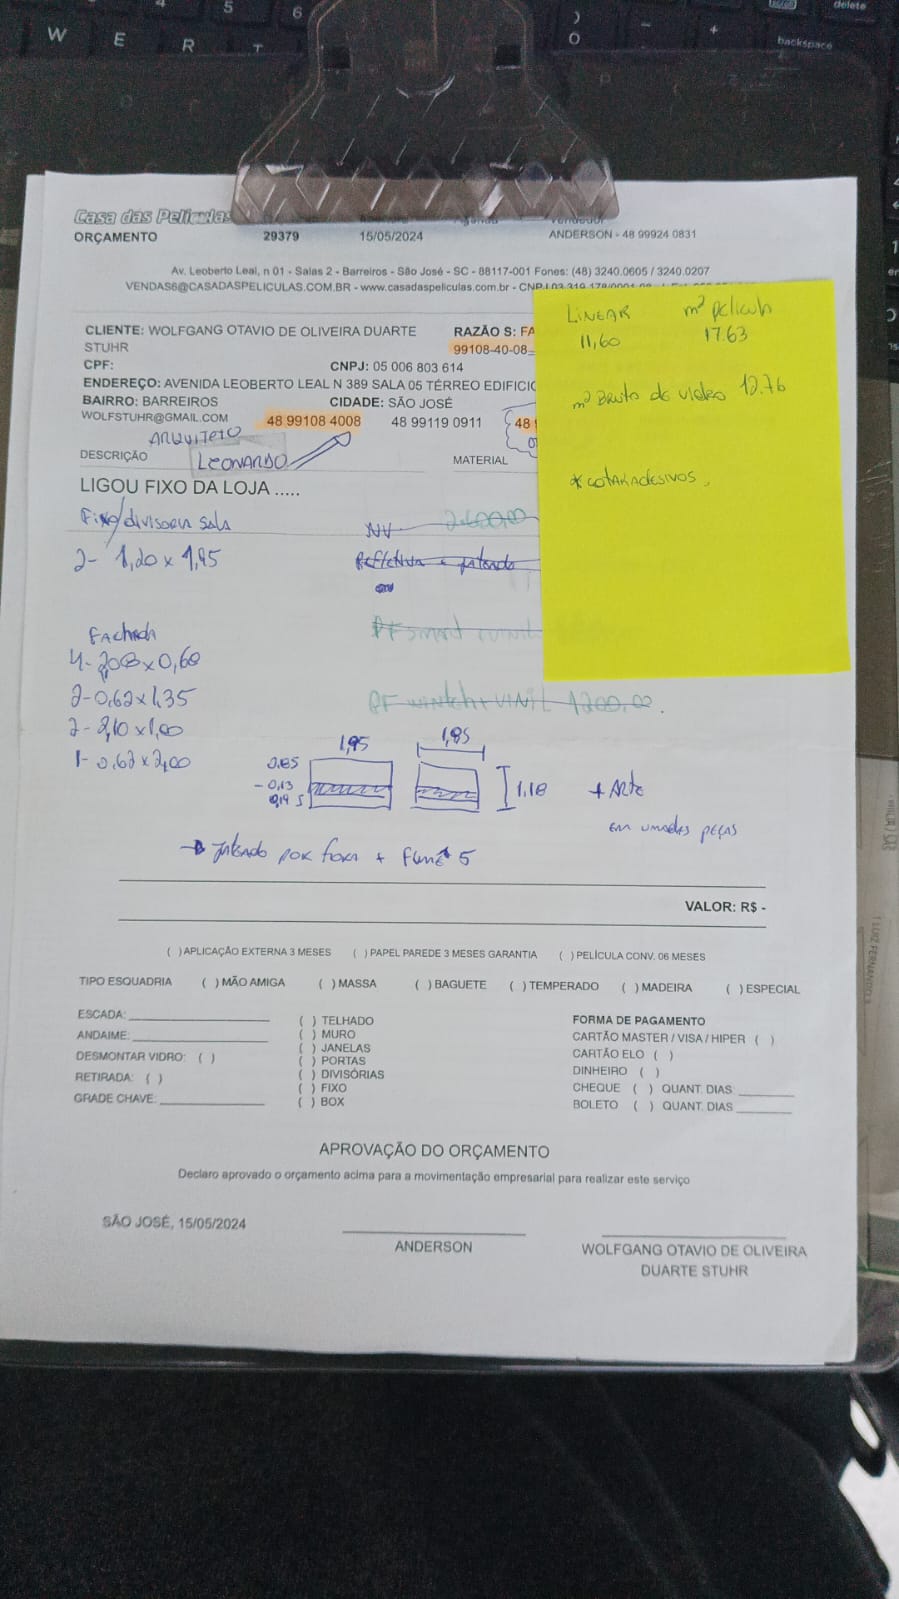 5 6
W E R T O - + backspace
delete
Casa das Películas
ORÇAMENTO 29379 15/05/2024 ANDERSON - 48 99924 0831
Av. Leoberto Leal, n 01 - Salas 2 - Barreiros - São José - SC - 88117-001 Fones: (48) 3240.0605 / 3240.0207
VENDAS6@CASADASPELICULAS.COM.BR - www.casadaspeliculas.com.br - CNPJ
CLIENTE: WOLFGANG OTAVIO DE OLIVEIRA DUARTE RAZÃO S: FA
STUHR 99108-40-08
CPF: CNPJ: 05 006 803 614
ENDEREÇO: AVENIDA LEOBERTO LEAL N 389 SALA 05 TÉRREO EDIFICIO
BAIRRO: BARREIROS CIDADE: SÃO JOSÉ
WOLFSTUHR@GMAIL.COM 48 99108 4008 48 99119 0911 48
ARQUITETO
DESCRIÇÃO LEONARDO MATERIAL
LIGOU FIXO DA LOJA .....
LINEAR m² película
11,60 17.63
m² Bruto de vidro 12.76
* cotar adesivos.
Fixo/divisoria sala NV 2.600,00
2- 1,20 x 1,95 Refletiva e jateado
Fachada
4- 2,08 x 0,60 PF smart
2- 0,62 x 1,35
PF WINTCH + VINIL 1200,00.
2- 2,10 x 1,00
1- 0,62 x 2,00
1,95 1,85
0,85
- 0,13
0,19 5
1,18
+ Arte
em umadas peças
→ Jateado por fora + Fumê 5
VALOR: R$ -
( ) APLICAÇÃO EXTERNA 3 MESES ( ) PAPEL PAREDE 3 MESES GARANTIA ( ) PELÍCULA CONV. 06 MESES
TIPO ESQUADRIA ( ) MÃO AMIGA ( ) MASSA ( ) BAGUETE ( ) TEMPERADO ( ) MADEIRA ( ) ESPECIAL
ESCADA: ( ) TELHADO FORMA DE PAGAMENTO
ANDAIME: ( ) MURO CARTÃO MASTER / VISA / HIPER ( )
DESMONTAR VIDRO: ( ) ( ) JANELAS CARTÃO ELO ( )
RETIRADA: ( ) ( ) PORTAS DINHEIRO ( )
GRADE CHAVE: ( ) DIVISÓRIAS CHEQUE ( ) QUANT. DIAS:
( ) FIXO BOLETO ( ) QUANT. DIAS
( ) BOX
APROVAÇÃO DO ORÇAMENTO
Declaro aprovado o orçamento acima para a movimentação empresarial para realizar este serviço
SÃO JOSÉ, 15/05/2024
ANDERSON WOLFGANG OTAVIO DE OLIVEIRA
DUARTE STUHR